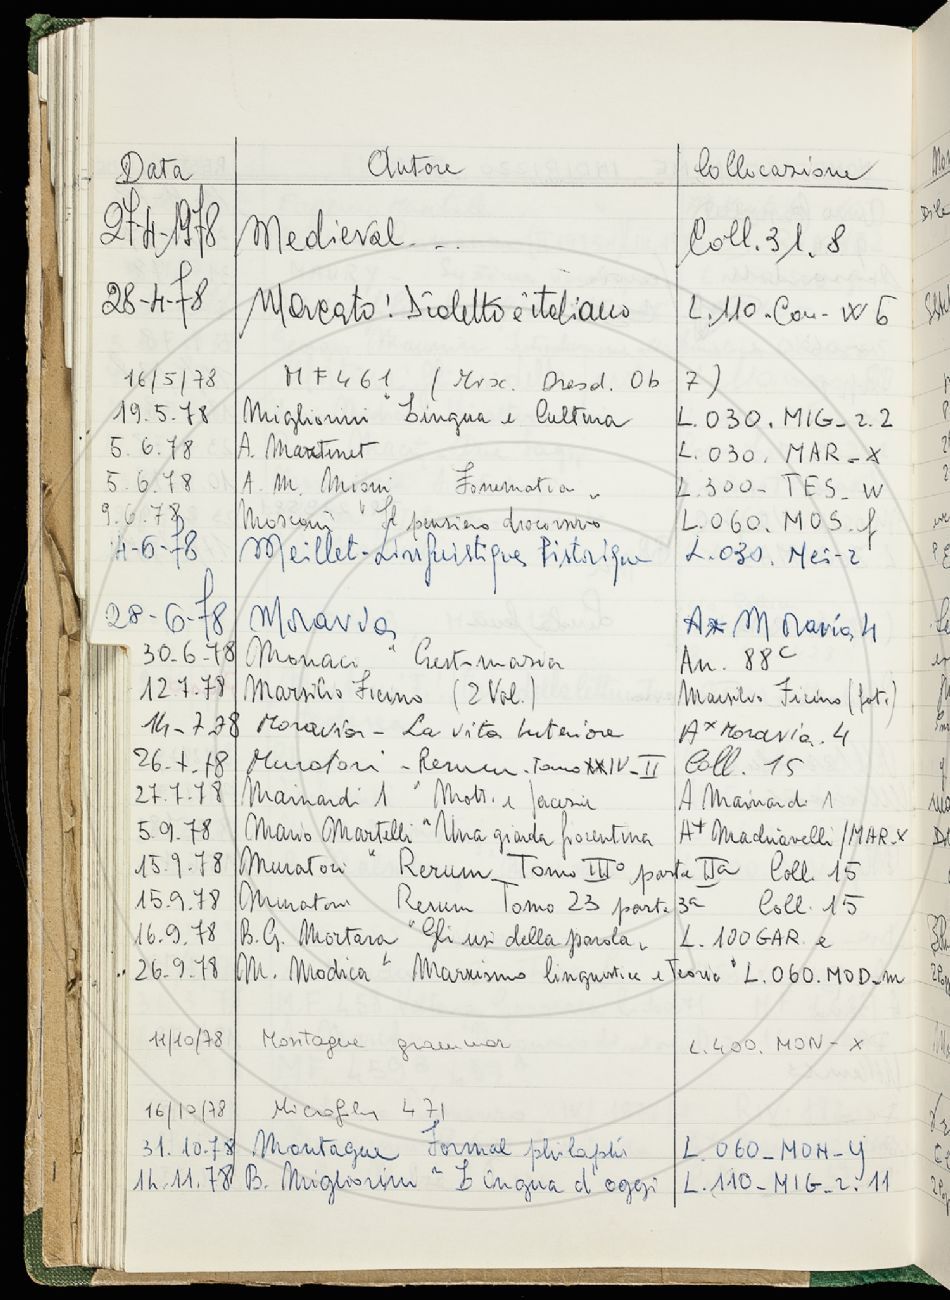 Data Autore Collocazione
27-4-1978 Medieval... Coll. 31. 8
28-4-78 Morcato: Dialetto e italiano L. 110-Con- W5
16/5/78 MF 461 (Mrsc. Dresd. Ob 7)
19.5.78 Migliorini " Lingua e Cultura L. 030. MIG-2.2
5.6.78 A. Martinet L. 030. MAR-X
5.6.78 A. M. Mioni Fonematica " L. 300- TES-W
9.6.78 Mosconi " Il pensiero discorsivo L. 060. MOS. f
14-6-78 Meillet-Linguistique historique L. 030. Mei-2
28-6-78 Moravia A* Moravia 4
30-6-78 Monaci " Crestomazia An. 88c
12.7.78 Marsilio Ficino (2 Vol.) Marsilio Ficino (fot.)
14-7-78 Moravia - La vita Interiore A* Moravia. 4
26-7-78 Muratori - Rerum. Tomo XXIV-II Coll. 15
27.7.78 Mainardi 1 " Mott. e facezie A Mainardi 1
5.9.78 Mario Martelli " Una giarda fiorentina A+ Machiavelli /MAR.X
15.9.78 Muratori " Rerum Tomo III° parte IIa Coll. 15
15.9.78 Muratori Rerum Tomo 23 parte 3a Coll. 15
16.9.78 B.G. Mortara " Gli usi della parola " L. 100 GAR e
26.9.78 M. Modica " Marxismo linguistica e Teoria " L. 060. MOD-m
11/10/78 Montague grammar L. 400. MON-X
16/10/78 Microfilm 471
31.10.78 Montague Formal philaphi L. 060-MON-y
14.11.78 B. Migliorini " Lingua d'oggi L. 110-MIG-2.11